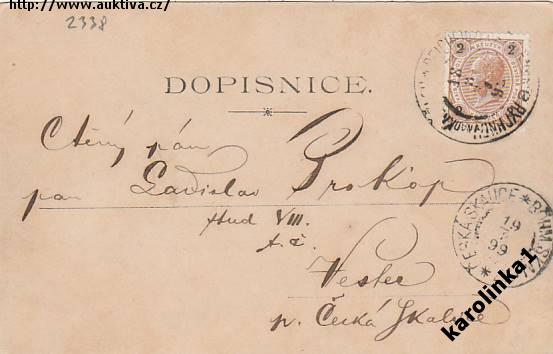 http://www.auktiva.cz/
2338
2 2
DOPISNICE.
Ctěný pán
pan Ladislav Prokop
stud VIII.
t. č.
Vestec
p. Česká Skalice
ČESKÁ SKALICE * BÖHM. SKALITZ *
19
99
karolinka1